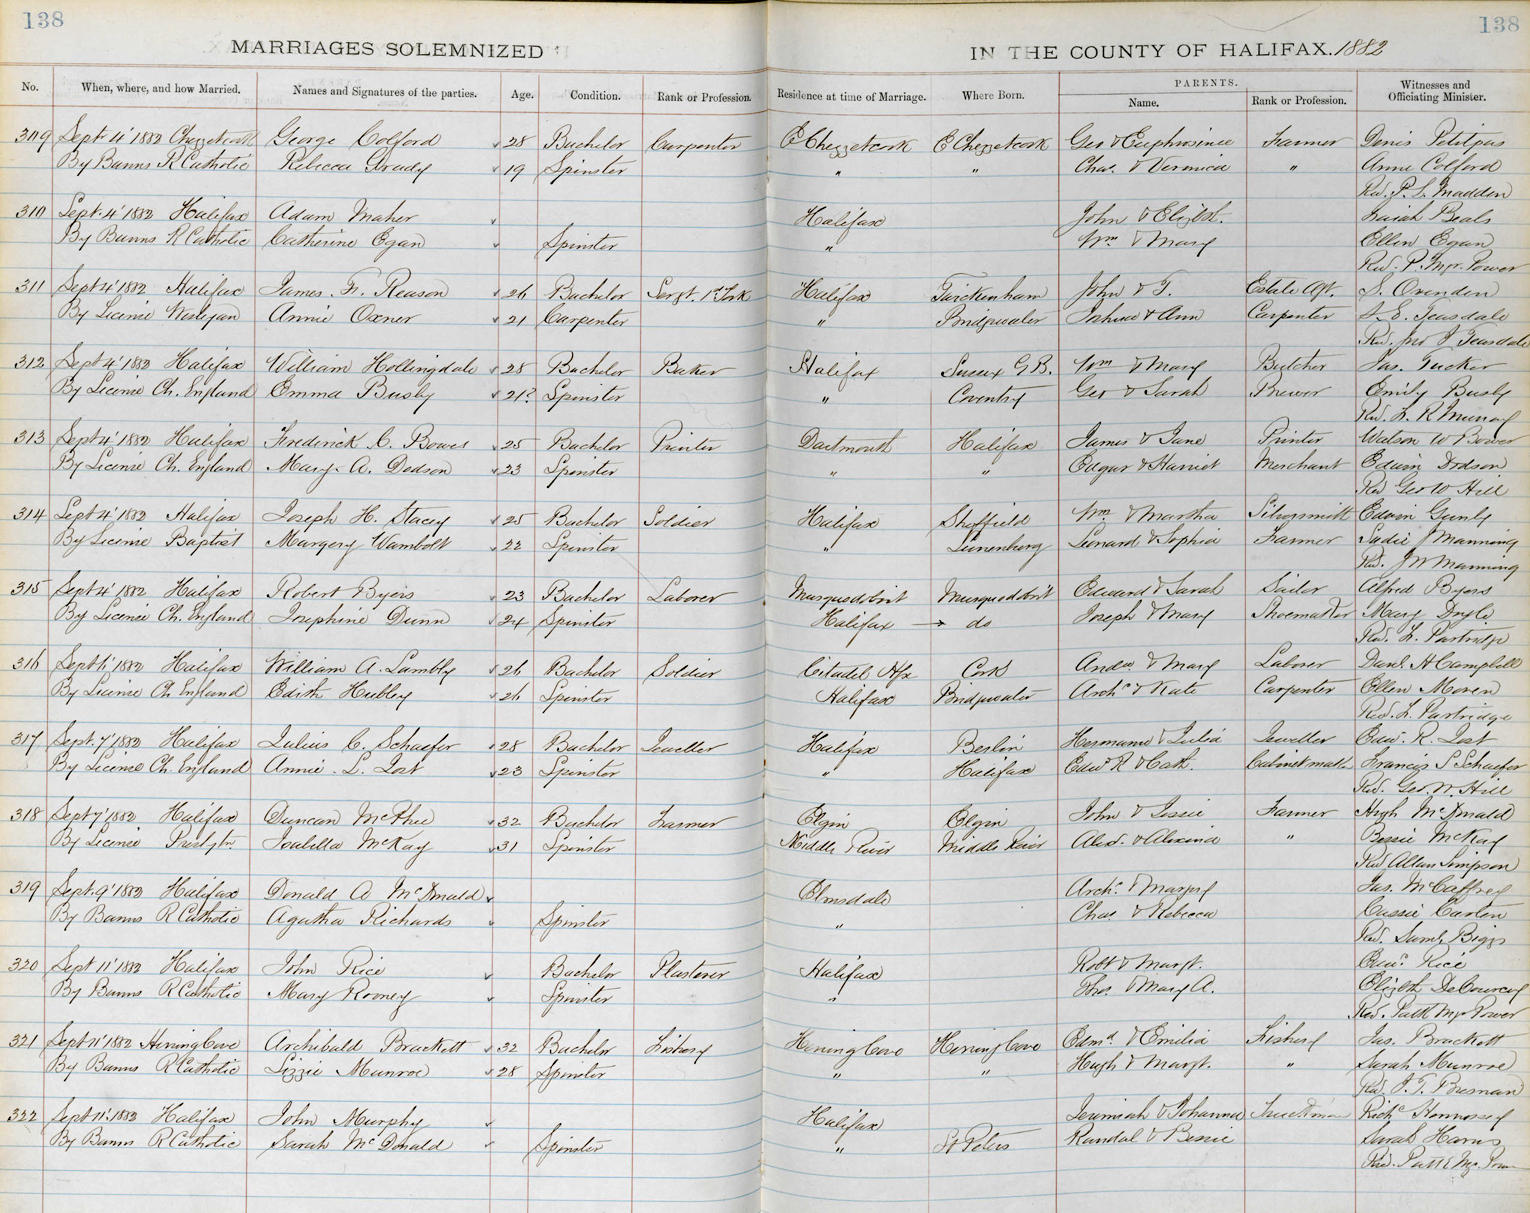 138
138
MARRIAGES SOLEMNIZED
IN THE COUNTY OF HALIFAX. 1882
No. When, where, and how Married. Names and Signatures of the parties. Age. Condition. Rank or Profession. Residence at time of Marriage. Where Born. PARENTS. Name. Rank or Profession. Witnesses and Officiating Minister.
309 Sept 4' 1882 Chezzetcook George Colford 28 Bachelor Carpenter E Chezzetcook E Chezzetcook Geo & Euphrosinee Farmer Denis Petitpas
By Banns R Catholic Rebecca Grady 19 Spinster " " Chas. & Veronica " Anne Colford
Rev. P. S. Madden
310 Sept. 4' 1882 Halifax Adam Maher Halifax John & Elizbth. Isaiah Beals
By Banns R Catholic Catherine Egan Spinster " Wm & Mary Ellen Egan
Rev. P. Mgr. Power
311 Sept 4' 1882 Halifax James F. Reason 26 Bachelor Sergt. 1st York Halifax Twickenham John & T. Estate Agt. J. Ovenden
By Licenie Wesleyan Annie Oxner 21 Carpenter " Bridgwater Joshua & Ann Carpenter S. E. Teasdale
Rev. Jno J Teasdale
312 Sept 4' 1882 Halifax William Hollingdale 28 Bachelor Baker Halifax Sussex G B. Wm & Mary Butcher Jas. Tucker
By Licenie Ch. England Emma Busby 21? Spinster " Coventry Geo & Sarah Brewer Emily Busby
Rev. F. R Murray
313 Sept 4' 1882 Halifax Frederick C. Bowes 25 Bachelor Printer Dartmouth Halifax James & Jane Printer Watson W Bower
By Licenie Ch. England Mary A. Dodson 23 Spinster " " Edgar & Harriet Merchant Edwin Dodson
Rev Geo W Hill
314 Sept 4' 1882 Halifax Joseph H. Stacey 25 Bachelor Soldier Halifax Sheffield Wm & Martha Silversmith Edwin
By Licenie Baptist Margery Wambolt 22 Spinster " Lunenburg Leonard & Sophia Farmer Sadie J Manning
Rev. J W Manning
315 Sept 4' 1882 Halifax Robert Byers 23 Bachelor Laborer Musquodobit Musquodobit Edward & Sarah Sailor Alfred Byers
By Licenie Ch. England Josephine Dunn 24 Spinster Halifax → do Joseph & Mary Shoemaker Mary Doyle
Rev. F. Partridge
316 Sept 6' 1882 Halifax William A. Lambly 26 Bachelor Soldier Citadel Hfx Cork Andw & Mary Laborer Danl. H Campbell
By Licenie Ch England Edith Hubley 26 Spinster Halifax Bridgwater Archd & Kate Carpenter Ellen Moren
Rev. F. Partridge
317 Sept. 7' 1882 Halifax Julius C. Schaefer 28 Bachelor Jeweller Halifax Berlin Hermann & Julia Jeweller Edw. R. Jost
By Licenie Ch. England Annie. L. Jost 23 Spinster " Halifax Edwd R & Cath. Cabinetmakr Francis S Schaefer
Rev. Geo. W. Hill
318 Sept 7' 1882 Halifax Duncan McPhee 32 Bachelor Farmer Elgin Elgin John & Jessie Farmer Hugh McDonald
By Licenie Presbytn Isabella McKay 31 Spinster Middle River Middle River Alexr. & Alexina " Bessie McKay
Rev Allan Simpson
319 Sept. 9' 1882 Halifax Donald A McDonald Elmsdale Archd. & Margry Jas. McCaffrey
By Banns R Catholic Agatha Richards Spinster " Chas & Rebecca Cassie Carten
Rev. Saml. Biggs
320 Sept 11' 1882 Halifax John Rice Bachelor Plasterer Halifax Robt & Margt. Edwd. Rice
By Banns R Catholic Mary Rooney Spinster " Thos. & Mary A. Elizbth DeCourcey
Rev. Patk Mgr Power
321 Sept 11' 1882 Herring Cove Archibald Brackett 32 Bachelor Fishery Herring Cove Herring Cove Edmd. & Emilia Fishery Jas. Brackett
By Banns R Catholic Lizzie Munroe 28 Spinster " " Hugh & Margt. " Sarah Munroe
Rev. J. T. Bresnan
322 Sept 11'. 1882 Halifax John Murphy Halifax Jeremiah & Johanna Truckman Richd Hennessey
By Banns R Catholic Sarah McDonald Spinster " St Peters Randal & Bessie Sarah Harris
Rev. Patk Mgr. Power